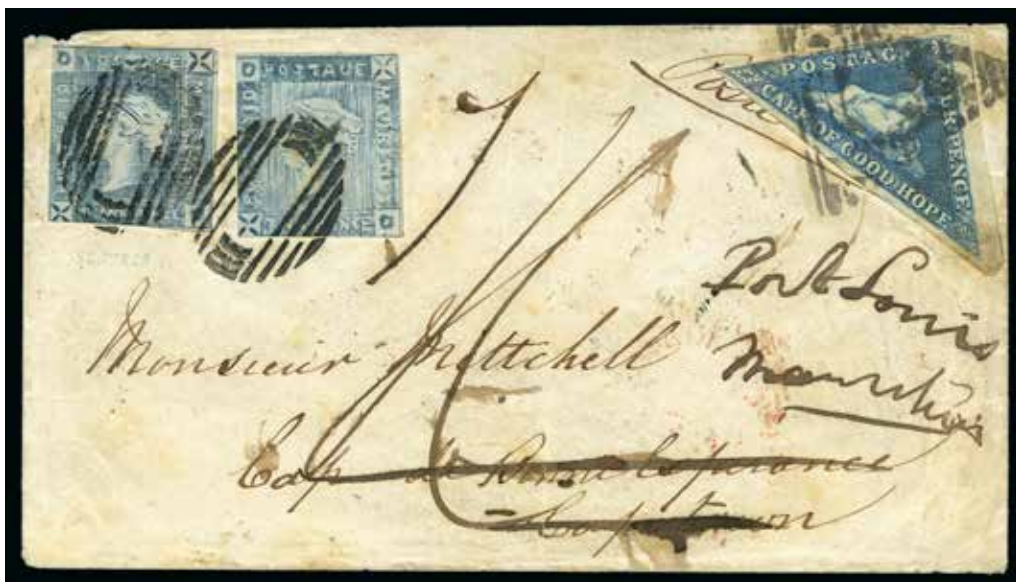 POSTAGE
POSTAGE
POSTAGE
CAPE OF GOOD HOPE
FOUR PENCE
1/
Port Louis
Mauritius
Monsieur Mittchell
Cap de Bonne Esperance
Cap town